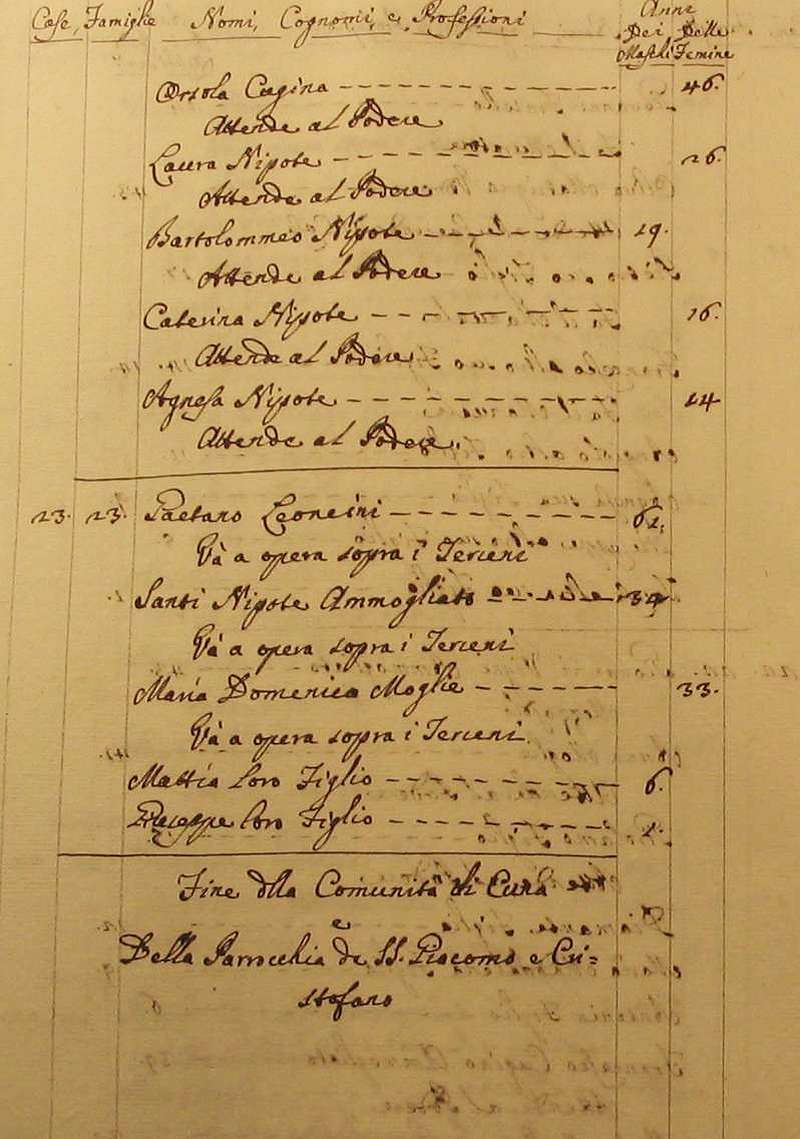 Case, Famiglie Nomi, Cognomi, e Professioni Anni
Dei Delle
Maschi Femine
Orsola Cugina 46.
Attende al Podere
Laura Nipote 26.
Attende al Podere
Bartolommeo Nipote 19.
Attende al Podere
Caterina Nipote 16.
Attende al Podere
Agnesa Nipote 14
Attende al Podere
23. 23. Gaetano Leoncini
Và a opera sopra i Terreni
Santi Nipote Ammogliato
Và a opera sopra i Terreni
Maria Domenica Moglie 33.
Và a opera sopra i Terreni
Mattia loro Figlio 6.
Giuseppe loro Figlio
Fine della Comunità di
e
Della Parrocchia de SS. Giacomo e Cri=
stofano